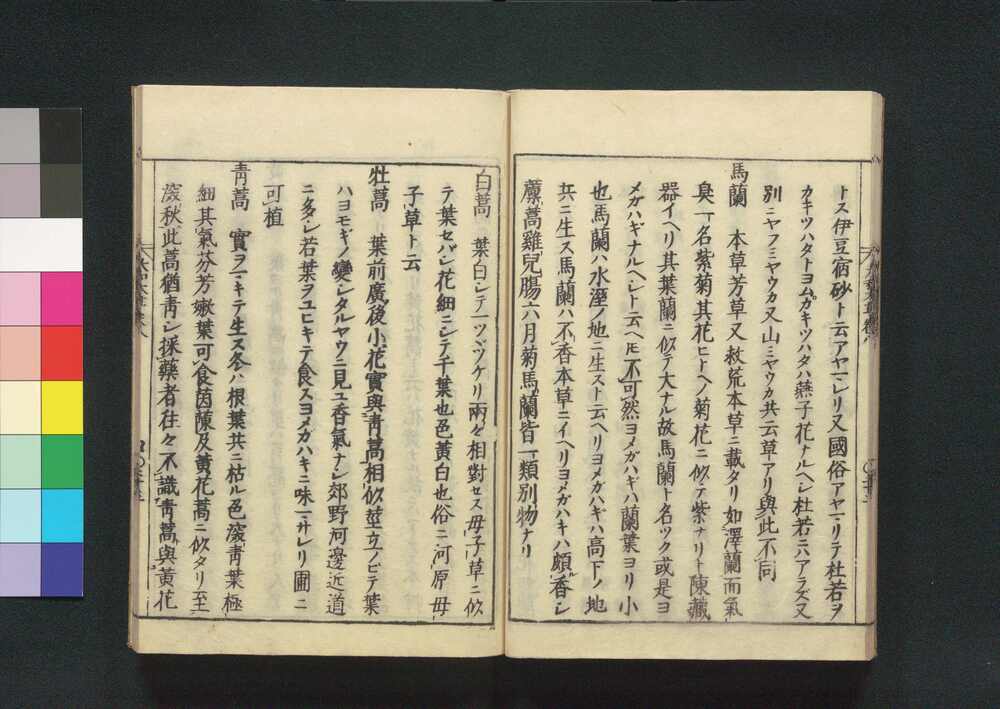 トス伊豆宿砂ト云アヤマレリ又國俗アヤマリテ杜若ヲ
カキツハタトヨムカキツハタハ燕子花ナルヘシ杜若ニハアラズ又
別ニヤフミヤウカ又山ミヤウカ共云草アリ與此不同
馬蘭 本草芳草又救荒本草ニ載タリ如澤蘭而氣
臭一名紫菊其花ヒトヘノ菊花ニ似テ紫ナリト陳藏
器イヘリ其葉蘭ニ似テ大ナル故馬蘭ト名ツク或是ヨ
メガハギナルヘシト云ヘ𪜈不可然ヨメガハギハ蘭葉ヨリ小
也馬蘭ハ水溼ノ地ニ生スト云ヘリヨメカハギハ高下ノ地
共ニ生ス馬蘭ハ不香本草ニイヘリヨメガハキハ頗香シ
麡蒿雞兒膓六月菊馬蘭皆一類別物ナリ
白蒿 葉白シテ一ツヅケリ兩々相對セス母子草ニ似
テ葉セバシ花細ニシテ千葉也色黃白也俗ニ河原母
子草ト云
牡蒿 葉前廣後小花實與靑蒿相似莖立ノビテ葉
ハヨモギノ變シタルヤウニ見ユ香氣ナシ郊野河邊近道
ニ多シ若葉ヲユビキテ食スヨメガハキニ味マサレリ圃ニ
可植
靑蒿 實ヲマキテ生ス冬ハ根葉共ニ枯ル色深靑葉極
細其氣芬芳嫩葉可食茵陳及黃花蒿ニ似タリ至
深秋此蒿猶靑シ採藥者往々不識靑蒿與黃花